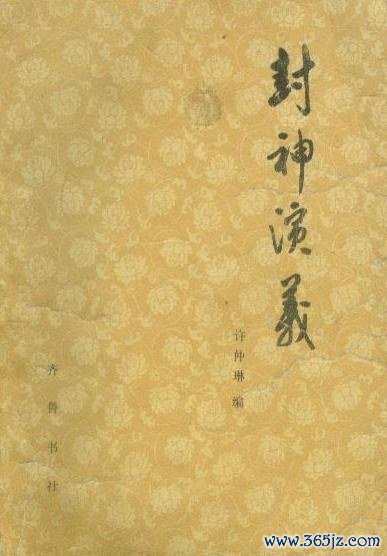 封神演義
许仲琳 编
齐鲁书社
www.365jz.com